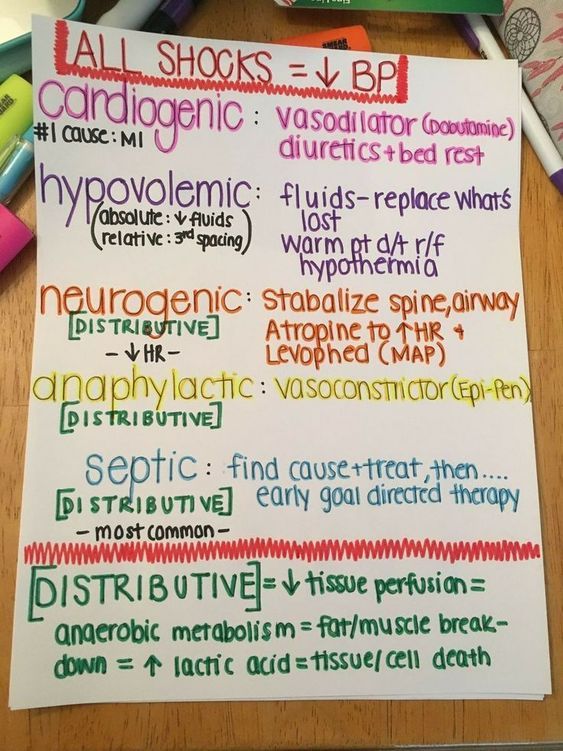 ALL SHOCKS = ↓ BP
cardiogenic : vasodilator (Dobutamine)
#1 cause: MI diuretics + bed rest
hypovolemic : fluids - replace what's
(absolute : ↓ fluids lost
relative : 3rd spacing) warm pt d/t r/f
hypothermia
neurogenic : stabalize spine, airway
[DISTRIBUTIVE] Atropine to ↑ HR +
- ↓ HR - Levophed (MAP)
anaphylactic : vasoconstrictor (Epi-Pen)
[DISTRIBUTIVE]
septic : find cause + treat, then....
[DISTRIBUTIVE] early goal directed therapy
- most common -
[DISTRIBUTIVE] = ↓ tissue perfusion =
anaerobic metabolism = fat/muscle break-
down = ↑ lactic acid = tissue/cell death